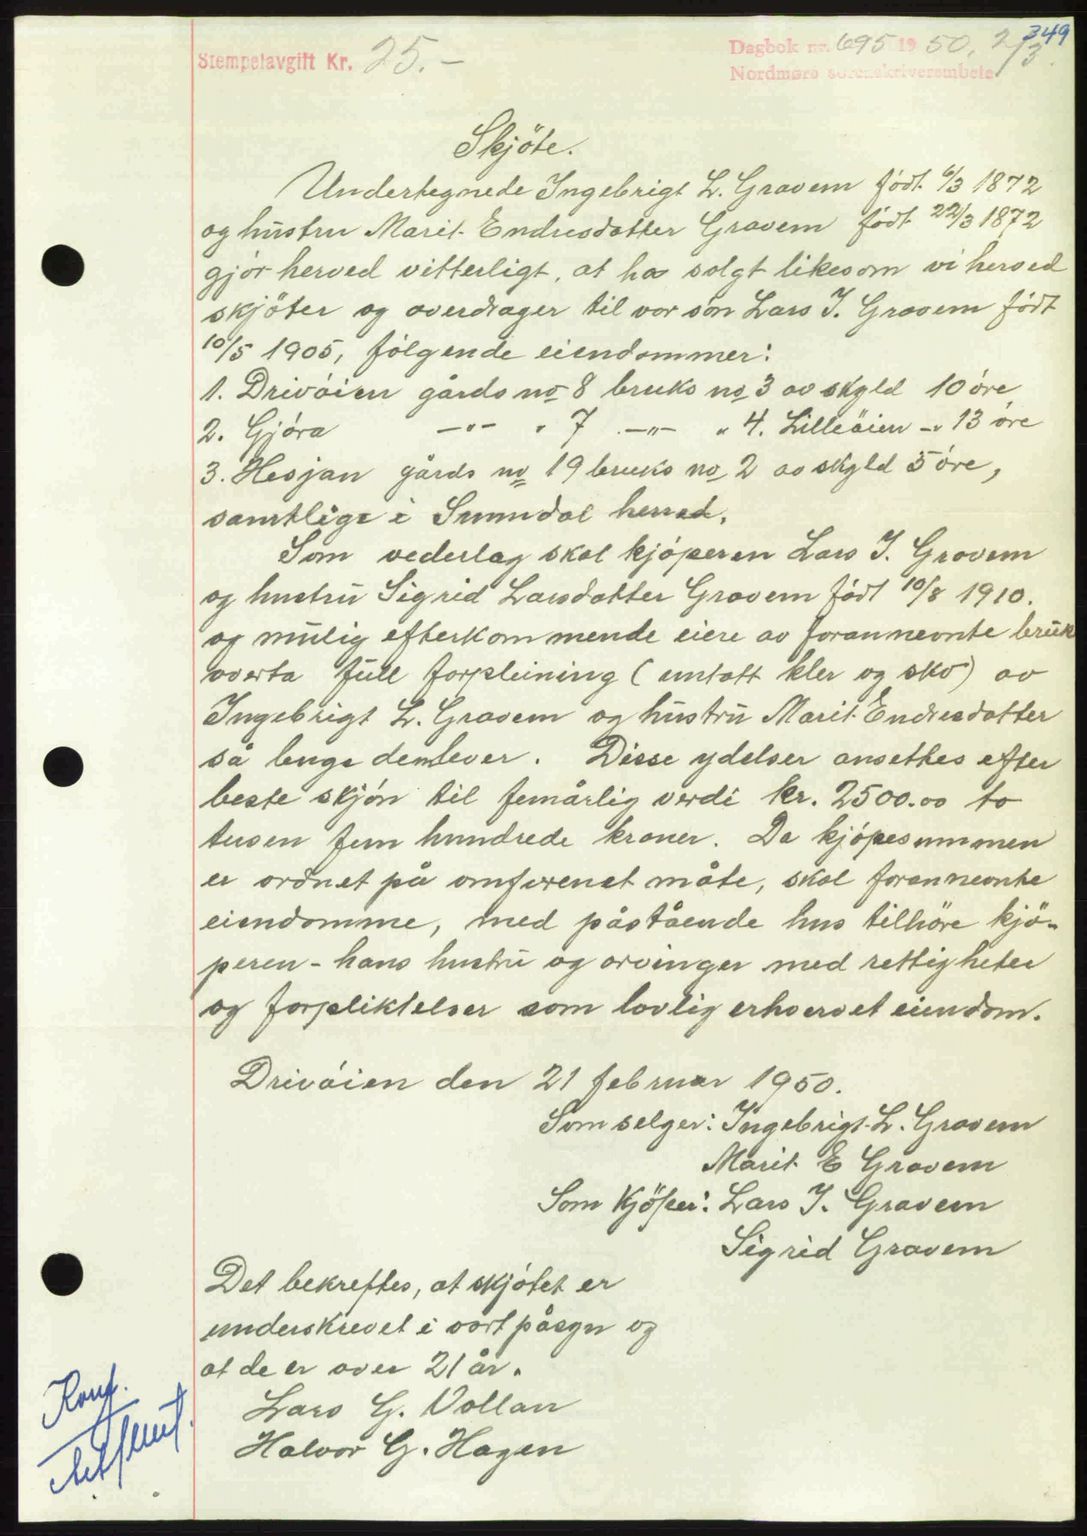 349
Stempelavgift Kr. 25.-
Dagbok nr. 695 1950, 2/3.
Nordmøre sorenskriverembete
Skjöte.
Undertegnede Ingebrigt L. Gravem født 6/3 1872
og hustru Marit Endresdatter Gravem født 22/3 1872
gjør herved vitterligt, at ha solgt likesom vi herved
skjöter og overdrager til vor søn Lars I. Gravem født
10/5 1905, følgende eiendommer:
1. Driväien gårds no 8 bruks no 3 av skyld 10 öre
2. Gjøra -"- " 7 -"- " 4. Lilleöien -" 13 öre
3. Hesjan gårds no 19 bruks no 2 av skyld 5 öre,
samtlige i Sunndal herred.
Som vederlag skal kjøperen Lars I. Gravem
og hustru Sigrid Larsdatter Gravem født 10/8 1910.
og mulig efterkommende eiere av forannevnte bruk
overta full forpleining (untatt kler og sko) av
Ingebrigt L. Gravem og hustru Marit Endresdatter
så lenge de lever. Disse ydelser ansettes efter
beste skjøn til femårlig verdi kr. 2500.00 to
tusen fem hundrede kroner. Da kjøpesummen
er ordnet på omforenet måte, skal forannevnte
eiendomme, med påstående hus tilhöre kjö-
peren - hans hustru og arvinger med rettigheter
og forpliktelser som lovlig erhvervet eiendom.
Drivøien den 21 februar 1950.
Som selger: Ingebrigt L. Gravem
Marit E Gravem
Som Kjöper: Lars I. Gravem
Sigrid Gravem
Det bekreftes, at skjøtet er
underskrevet i vort påsyn og
at de er over 21 år.
Lars G. Vollan
Halvor G. Hagen
Konf.